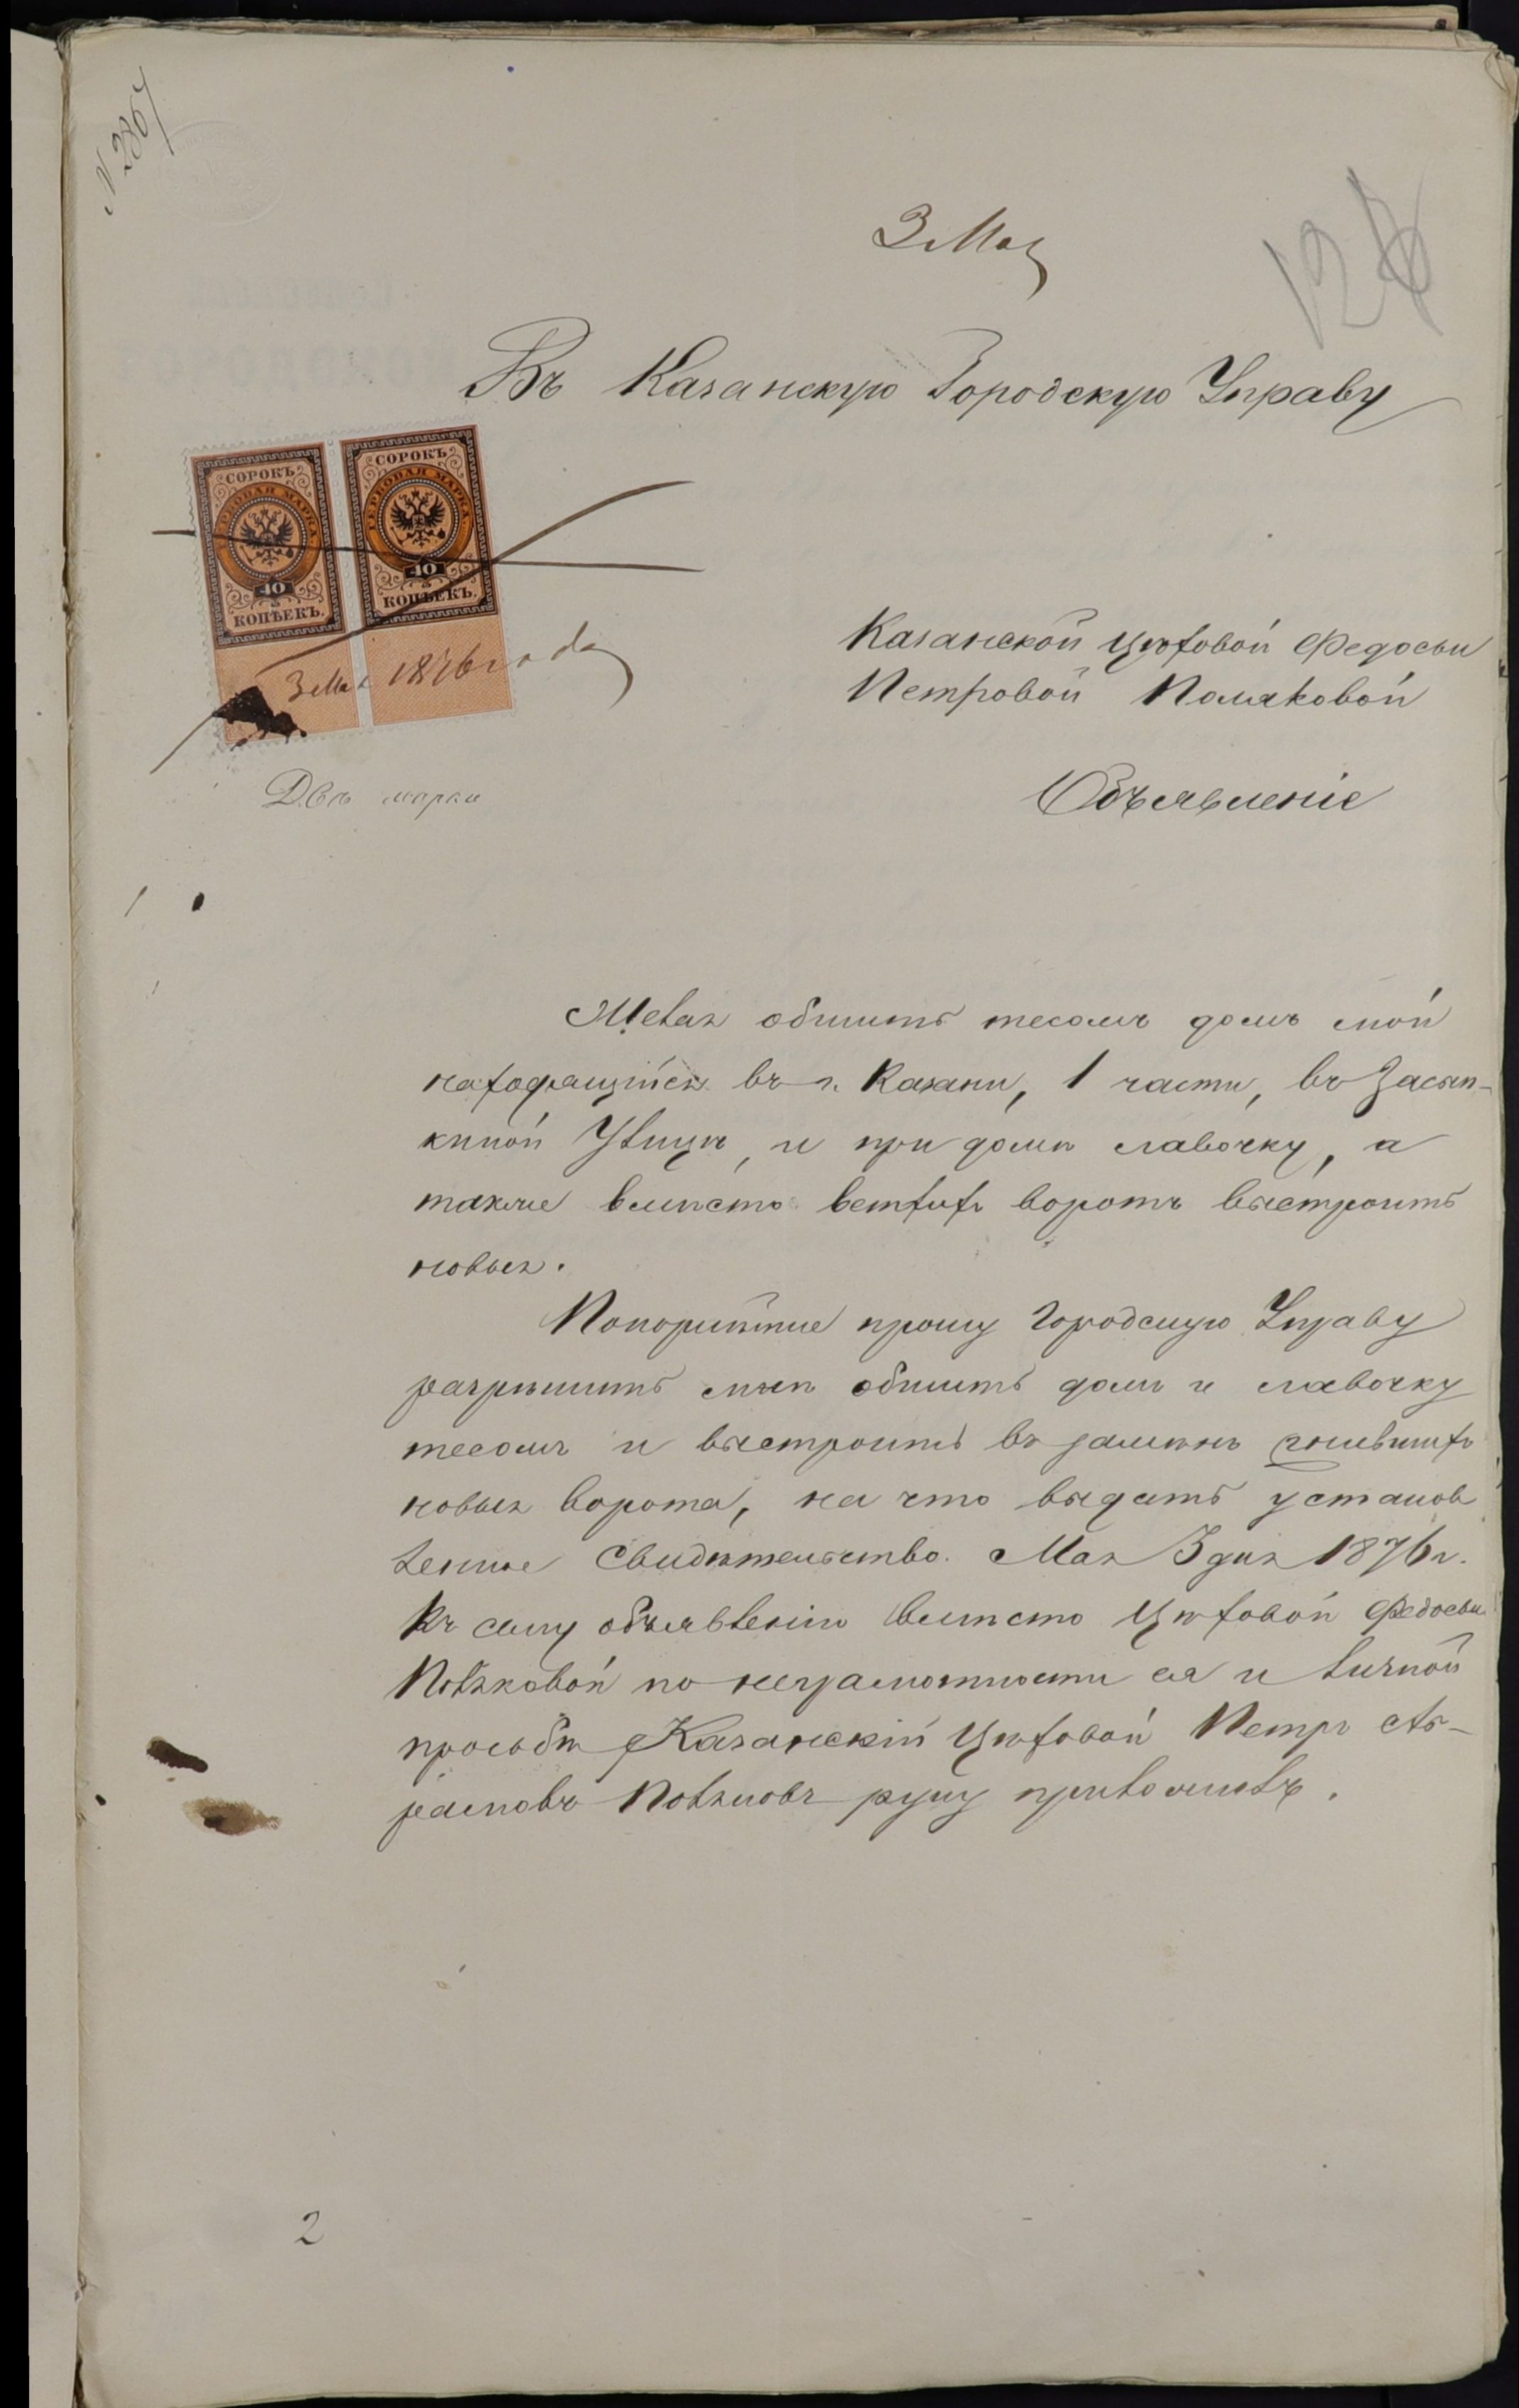 N 2867
3 Мая
Въ Казанскую Городскую Управу
СОРОКЪ СОРОКЪ
ГЕРБОВАЯ МАРКА ГЕРБОВАЯ МАРКА
40 40
КОПѢЕКЪ. КОПѢЕКЪ.
3 Мая 1876 года
Двѣ марки
Казанской Цѣховой Федосьи
Петровой Поляковой
Объявленіе
Желая обшить тесомъ домъ мой
находящійся въ г. Казани, 1 части, въ Засып-
киной Улицѣ, и при домѣ лавочку, а
также вмѣсто ветхихъ воротъ выстроить
новыя.
Покорнѣйше прошу Городскую Управу
разрѣшить мнѣ обшить домъ и лавочку
тесомъ и выстроить въ замѣнъ гнившихъ
новыя ворота, на что выдать установ
ленное Свидѣтельство. Мая 3 дня 1876 г.
Къ сему объявленію вмѣсто Цѣховой Федосьи
Поляковой по неграмотности ея и личной
просьбѣ Казанскій Цѣховой Петръ
Поляковъ руку приложилъ.
2